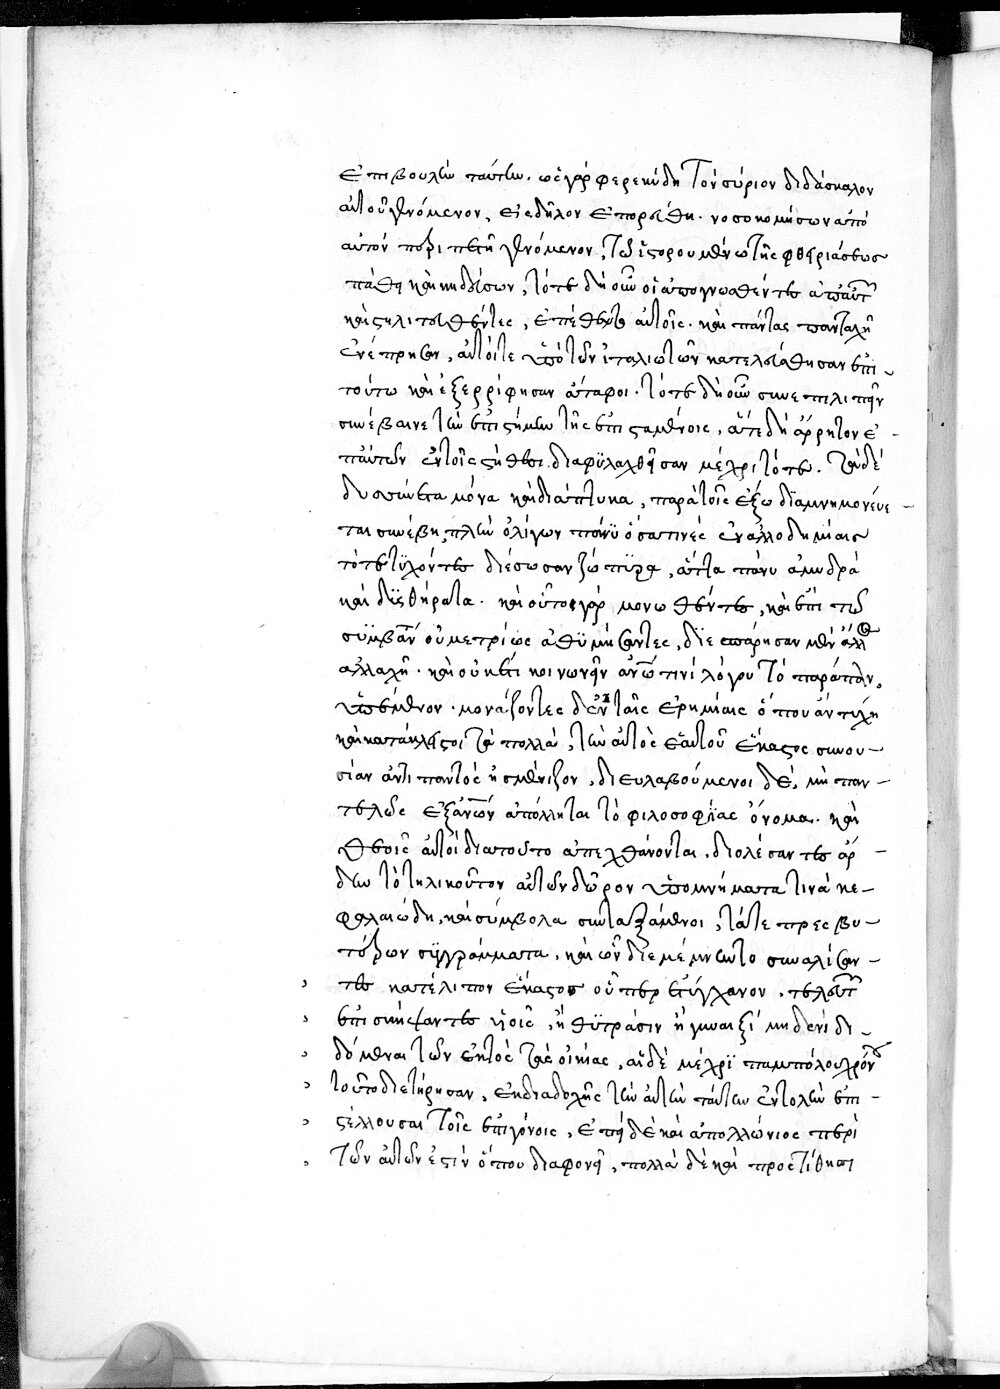 ἐπιβουλὴν ταύτην. ὡς γὰρ φερεκύδη τὸν σύριον διδάσκαλον
αὐτοῦ γενόμενον, εἰς δῆλον ἐπορεύθη. νοσοκομήσων
αὐτὸν περιπετῆ γενόμενον, τῷ ἱστορουμένῳ τῆς φθειριάσεως
πάθει καὶ κηδεύσων, τότε δὴ οὖν οἱ ἀπογνωσθέντες
καὶ στηλιτευθέντες, ἐπέθεντο αὐτοῖς. καὶ πάντας πανταχῆ
ἐνέπρησαν, αὐτοί τε ὑπὸ τῶν ἰταλιωτῶν κατελεύσθησαν ἐπὶ
τούτω καὶ ἐξερρίφησαν ἄταφοι. τότε δὴ οὖν συνεπιλιπεῖν
συνέβαινε τὴν ἐπιστήμην τοῖς ἐπισταμένοις, ἅτε δὴ ἄρρητον ἐ-
π' αὐτῶν ἐν τοῖς στήθεσι διαφυλαχθεῖσαν μέχρι τότε. τὰ δὲ
δυσσύνετα μόνα καὶ διάπτυκα, παρὰ τοῖς ἔξω διαμνημονεύε-
ται συνέβη, πλὴν ὀλίγων πάνυ ὅσα τινὲς ἐν ἀλλοδημίαις
τότε τυχόντες διέσωσαν ζώπυρα, ἄττα πάνυ ἀμυδρὰ
καὶ δυσθήρατα. καὶ οὗτοι γὰρ μονωθέντες, καὶ ἐπὶ τῶ
συμβάντι οὐ μετρίως ἀθυμήσαντες, διεσπάρησαν μὲν ἄλλος
ἀλλαχῆ. καὶ οὐκέτι κοινωνεῖν ἀνθρώπων τινὶ λόγου τὸ παράπαν,
ὑπέμενον. μονάζοντες δ' ἐν ταῖς ἐρημίαις ὅπου ἂν τύχη
καὶ κατάκλειστοι τὰ πολλὰ, τὴν αὐτὸς ἑαυτοῦ ἕκαστος συνου-
σίαν ἀντὶ παντὸς ἠσμένιζον, διευλαβούμενοι δὲ, μὴ παν-
τελῶς ἐξ ἀνθρώπων ἀπόληται τὸ φιλοσοφίας ὄνομα. καὶ
θεοῖς αὐτοὶ διὰ τοῦτο ἀπεχθάνονται, διολέσαντες ἄρ-
δην τὸ τηλικοῦτον αὐτῶν δῶρον ὑπομνήματα τινὰ κε-
φαλαιώδη, καὶ σύμβολα συνταξάμενοι, τά τε πρεσβυ-
τέρων συγγράμματα, καὶ ὧν διεμέμνηντο συναλίσαν-
τες κατέλιπον ἕκαστος οὗπερ ἐτύγχανον, τελευτῶν
ἐπισκήψαντες υἱοῖς, ἢ θυγατράσιν ἢ γυναιξὶ μηδενὶ δι-
δόμεναι τῶν ἐκτὸς τῆς οἰκίας, αἱ δὲ μέχρι παμπόλου χρόνου
τοῦτο διετήρησαν, ἐκ διαδοχῆς τὴν αὐτὴν ταύτην ἐντολὴν ἐπι-
στέλλουσαι τοῖς ἐπιγόνοις, ἐπεὶ δὲ καὶ ἀπολλώνιος περὶ
τῶν αὐτῶν ἔστιν ὅπου διαφωνεῖ, πολλὰ δὲ καὶ προστίθησι